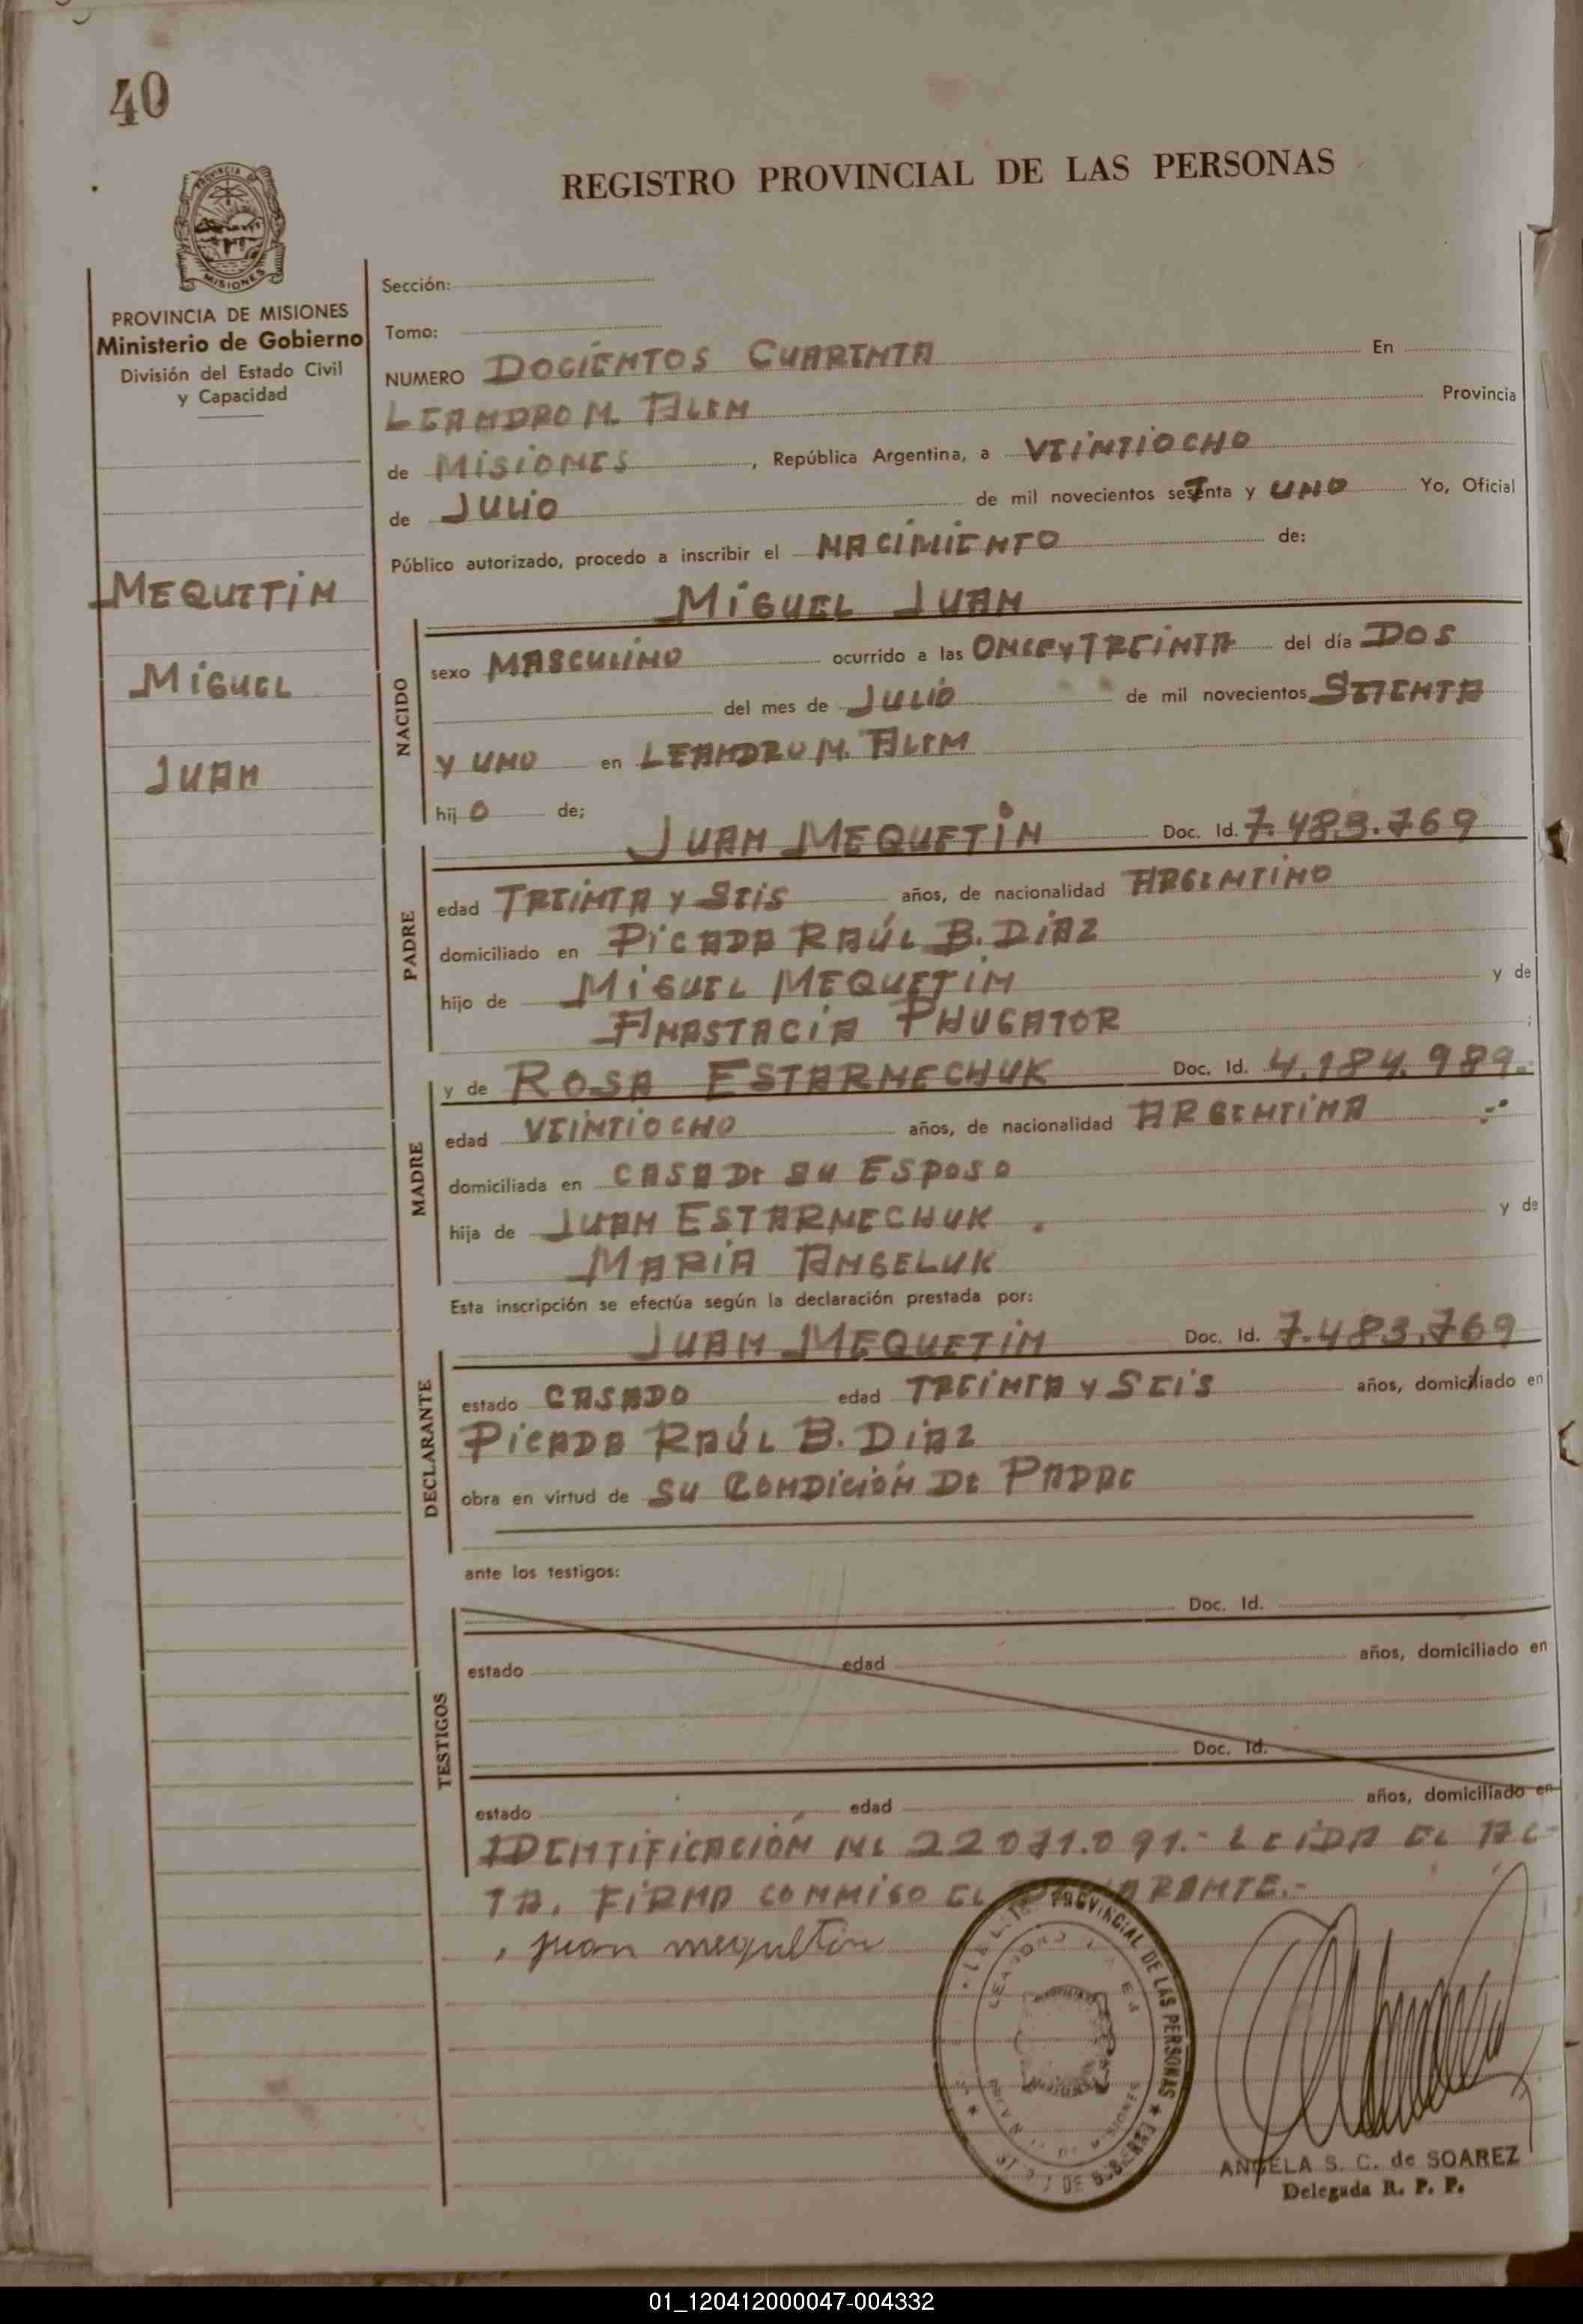 40
REGISTRO PROVINCIAL DE LAS PERSONAS
PROVINCIA DE MISIONES
Ministerio de Gobierno
División del Estado Civil
y Capacidad
MEQUETIN
MIGUEL
JUAN
Sección:
Tomo:
NUMERO DOCIENTOS CUARENTA En
LEANDRO N. ALEM Provincia
de MISIONES, República Argentina, a VEINTIOCHO
de JULIO de mil novecientos setenta y UNO Yo, Oficial
Público autorizado, procedo a inscribir el NACIMIENTO de:
MIGUEL JUAN
NACIDO
sexo MASCULINO ocurrido a las ONCE Y TREINTA del día DOS
del mes de JULIO de mil novecientos SETENTA
Y UNO en LEANDRO N. ALEM
hijO de;
JUAN MEQUETIN Doc. Id. 7.483.769
PADRE
edad TREINTA Y SEIS años, de nacionalidad ARGENTINO
domiciliado en PICADA RAÚL B. DIAZ
hijo de MIGUEL MEQUETIN y de
ANASTACIA PHUGATOR
y de ROSA ESTARNECHUK Doc. Id. 4.184.989.
MADRE
edad VEINTIOCHO años, de nacionalidad ARGENTINA
domiciliada en CASA DE SU ESPOSO
hija de JUAN ESTARNECHUK y de
MARIA ANGELUK
Esta inscripción se efectúa según la declaración prestada por:
JUAN MEQUETIN Doc. Id. 7.483.769
DECLARANTE
estado CASADO edad TREINTA Y SEIS años, domiciliado en
PICADA RAÚL B. DIAZ
obra en virtud de SU CONDICIÓN DE PADRE
ante los testigos:
Doc. Id.
TESTIGOS
estado edad años, domiciliado en
Doc. Id.
estado edad años, domiciliado en
IDENTIFICACIÓN Nº 22071.091.- LEIDA EL AC-
TA, FIRMA CONMIGO EL DECLARANTE.-
juan mequetin
PROVINCIAL DE LAS PERSONAS
ANGELA S. C. de SOAREZ
Delegada R. P. P.
01_120412000047-004332